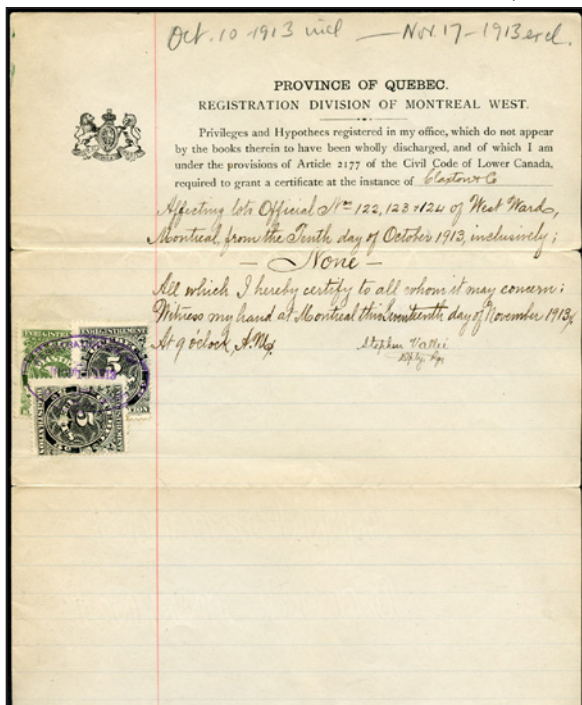 Oct. 10 1913 incl — Nov. 17-1913 excl.
PROVINCE OF QUEBEC.
REGISTRATION DIVISION OF MONTREAL WEST.
Privileges and Hypothecs registered in my office, which do not appear
by the books therein to have been wholly discharged, and of which I am
under the provisions of Article 2177 of the Civil Code of Lower Canada,
required to grant a certificate at the instance of Claxton & Co
Affecting lots Official Nos 122, 123 & 124 of West Ward,
Montreal, from the Tenth day of October 1913, inclusively;
— None —
All which I hereby certify to all whom it may concern:
Witness my hand at Montreal this Seventeenth day of November 1913,
At 9 o'clock, A.M.
Stephen Vallée
Dpty. Rgr
ENREGISTREMENT
ENREGISTREMENT
5
5